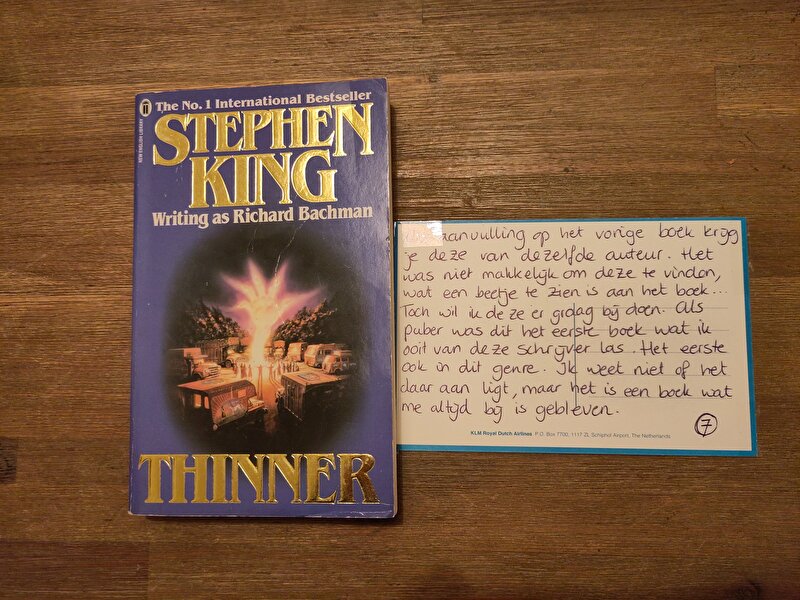 The No. 1 International Bestseller
NEW ENGLISH LIBRARY
STEPHEN
KING
Writing as Richard Bachman
THINNER
aanvulling op het vorige boek krijg
je deze van dezelfde auteur. Het
was niet makkelijk om deze te vinden,
wat een beetje te zien is aan het boek...
Toch wil ik deze er graag bij doen. Als
puber was dit het eerste boek wat ik
ooit van deze schrijver las. Het eerste
ook in dit genre. Ik weet niet of het
daar aan ligt, maar het is een boek wat
me altijd bij is gebleven.
7
KLM Royal Dutch Airlines P.O. Box 7700, 1117 ZL Schiphol Airport, The Netherlands